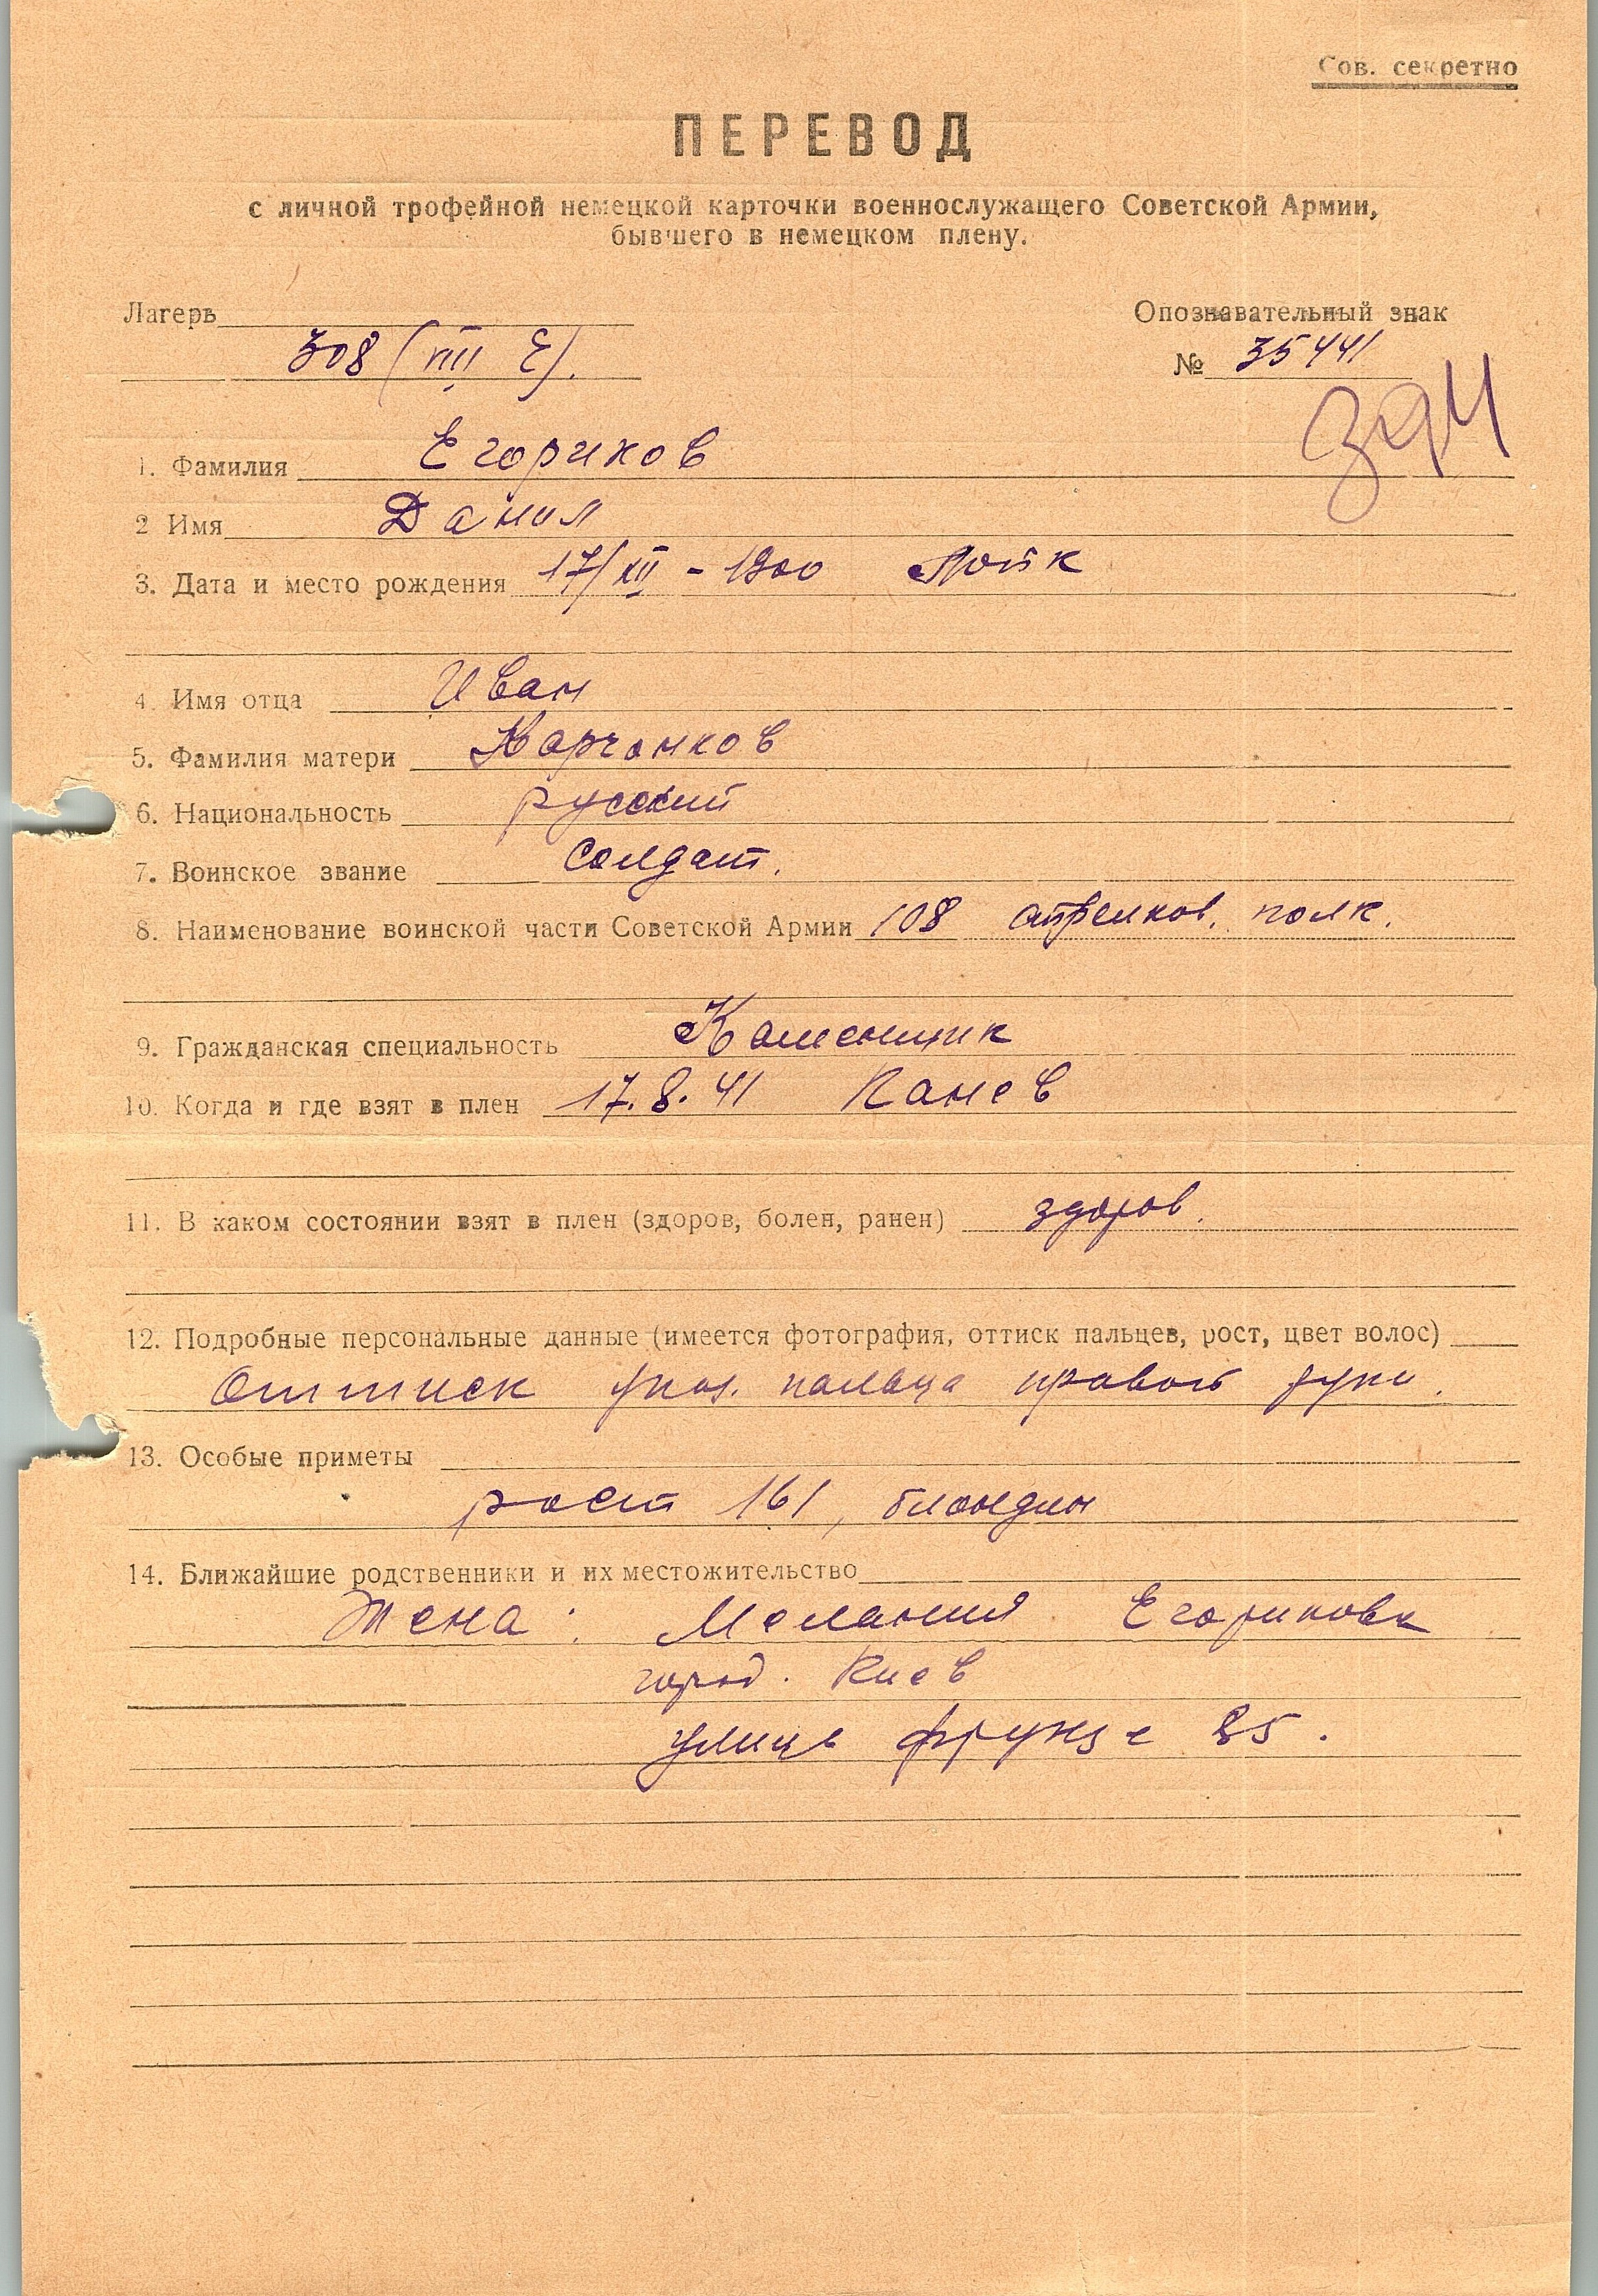 Сов. секретно
ПЕРЕВОД
с личной трофейной немецкой карточки военнослужащего Советской Армии,
бывшего в немецком плену.
Лагерь
Опознавательный знак
308 (VIII E).
№ 35441
1. Фамилия Егориков
2 Имя Данил
3. Дата и место рождения 17/XII - 1900
4. Имя отца Иван
5. Фамилия матери Корчонков
6. Национальность русский
7. Воинское звание солдат.
8. Наименование воинской части Советской Армии 108 стрелков. полк.
9. Гражданская специальность Каменщик
10. Когда и где взят в плен 17.8.41 Канев
11. В каком состоянии взят в плен (здоров, болен, ранен) здоров.
12. Подробные персональные данные (имеется фотография, оттиск пальцев, рост, цвет волос)
Оттиск указ. пальца правой руки.
13. Особые приметы
рост 161, блондин
14. Ближайшие родственники и их местожительство
Жена: Мелания Егорикова
город. Киев
улица Фрунзе 85.